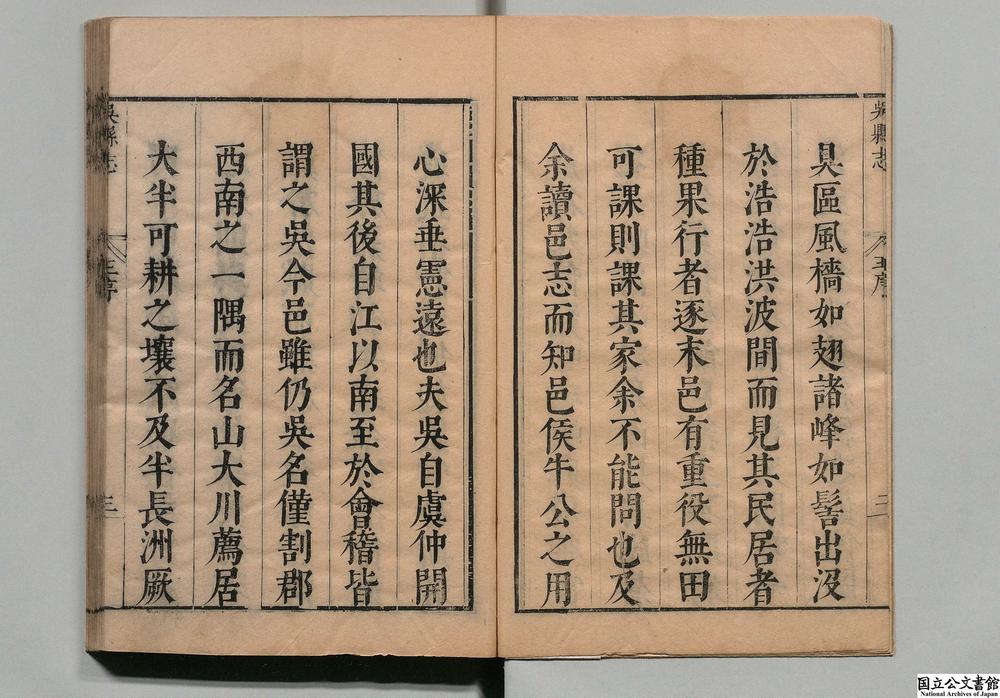 吳縣志
王序
二
具區風檣如翅諸峰如髻出沒
於浩浩洪波間而見其民居者
種果行者逐末邑有重役無田
可課則課其家余不能問也及
余讀邑志而知邑侯牛公之用
心深垂憲遠也夫吳自虞仲開
國其後自江以南至於會稽皆
謂之吳今邑雖仍吳名僅割郡
西南之一隅而名山大川薦居
大半可耕之壤不及半長洲厥
吳縣志
王序
三
国立公文書館
National Archives of Japan